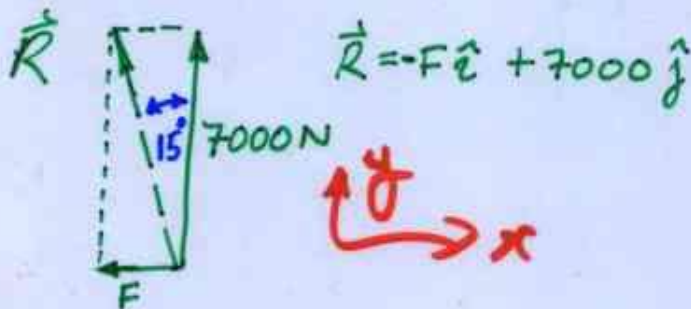 R⃗
R⃗ = -F î + 7000 ĵ
15°
7000 N
y
x
F